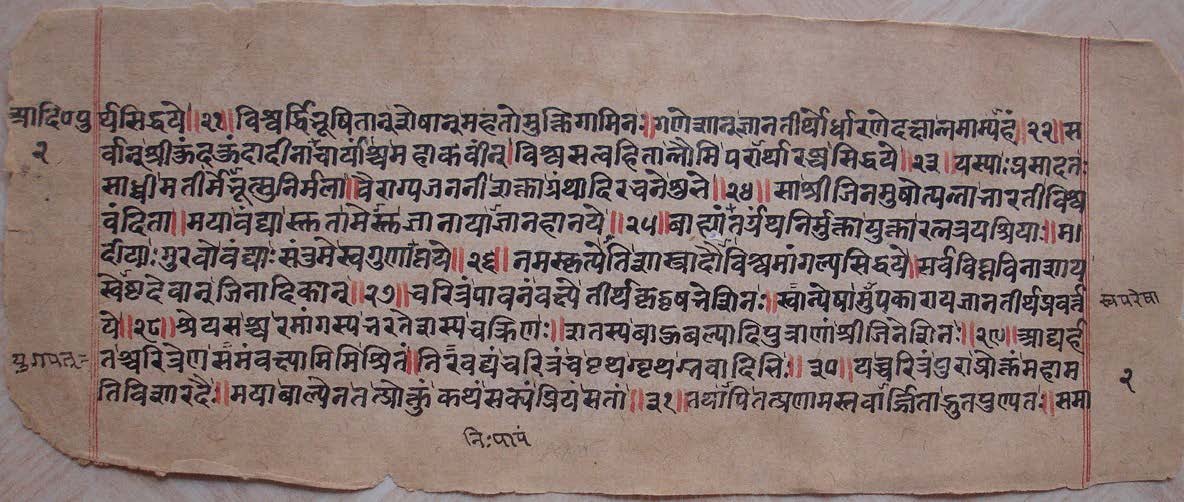 आदि॰पु
२
र्यसिद्धये॥२१॥विश्वर्द्धिभूषितान्शेषान्महतोमुक्तिगामिनः॥गणेशान्ज्ञानतीर्थोर्धारणेदह्नानमाम्यहं॥२२॥स
र्वान्श्रीकुंदकुंदादीनाचार्याश्चमहाकवीन्॥विश्वसत्वहितान्नौमिपरार्थारब्धसिद्धये॥२३॥यस्याःप्रसादतः
साध्वीमतीर्मेभूत्सुनिर्मला॥वैराग्यजननीरागत्यक्ताग्रंथादिरचनेशुभे॥२४॥साश्रीजिनमुखोत्पन्नाभारतीविश्व
वंदिता॥मयावंद्यास्कतामेस्तज्ञानायाज्ञानहानये॥२५॥बाह्यांतर्ग्रंथनिर्मुक्तायुक्तारत्नत्रयश्रियाः॥म।
दीयाःगुरवोवंद्याःसंतुमेस्वगुणाप्तये॥२६॥नमस्कृत्येतिशास्त्रादौविश्वमांगल्यसिद्धये॥सर्वविघ्नविनाशाय
स्वेष्टदेवान्जिनादिकान्॥२७॥चरित्रंपावनंवक्ष्येतीर्थकृद्वृषभेशिनः॥स्वान्येषामुपकारायज्ञानतीर्थप्रवर्त्त
स्वपरेषा
ये॥२८॥श्रेयसश्चरमांगस्यभरतेशस्यचक्रिणः॥शतस्यबाहुबल्यादिपुत्राणांश्रीजिनेशिनः॥२९॥आद्यर्ह
युगपत्=
तश्चरित्रेणसमंवक्ष्यामिमिश्रितं॥निरवद्यंचरित्रंचपृथग्पृथग्भवादिभिः॥३०॥यच्चरित्रंपुराप्रोक्तंमहाम
२
तिविशारदैः॥मयाबाल्येनतत्प्रोक्तुंकथंसक्यंप्रियंसतां॥३१॥तथापितत्प्रणामस्तवार्जिताद्भुतपुण्यतः॥समा
निःपापं